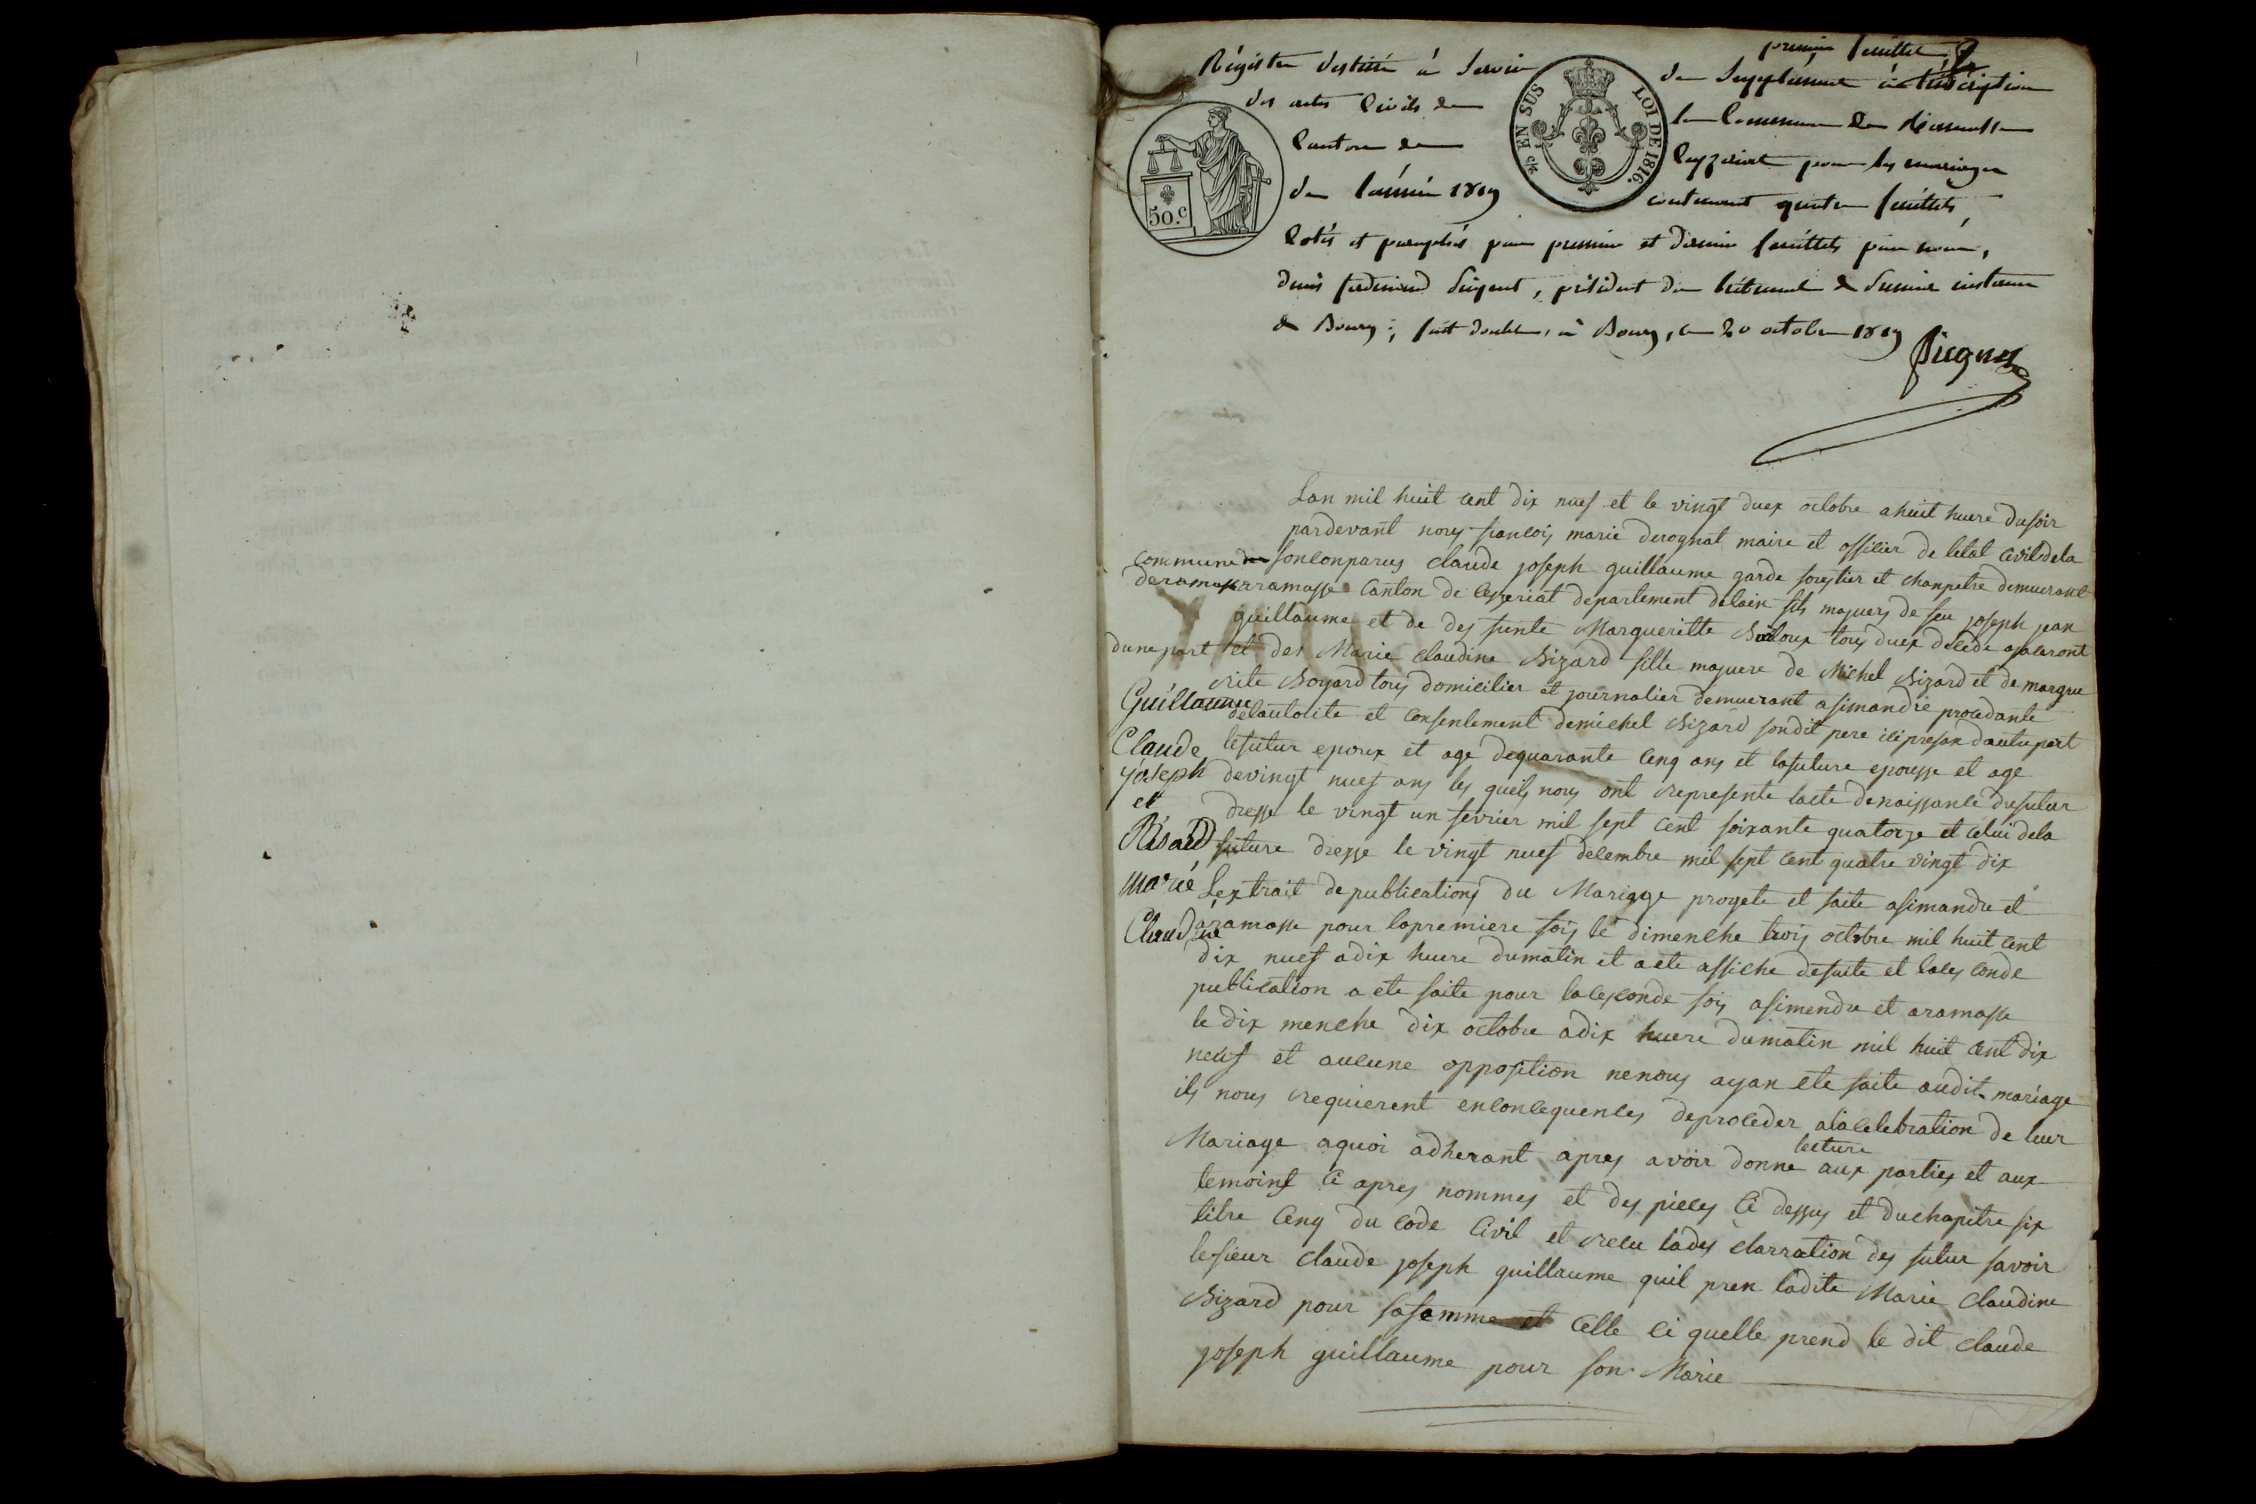 premier feuillet
Régistre destiné à servir de Supplément à l'inscription
des actes Civils de la Commune de Ramasse
Canton de Ceyzeriat pour les mariages
de l'année 1819 contenant quatre feuillets,
Cotés et paraphés par premier et dernier feuillets par nous,
denis ferdinand Picquet, président du tribunal de premier instance
de Bourg; fait double, à Bourg, le 20 octobre 1819
Picquet
50.c
EN SUS LOI DE 1816.
Lan mil huit cent dix nuef et le vingt duex octobre a huit huere dusoir
pardevant nous francois marie derognat maire et officier de letat Civil dela
commune de son conparus claude joseph guillaume garde forestier et chanpetre demuerant
deramasse aramasse Canton de Ceyzeriat departement delain fils majuers de feu joseph jean
guillaume et de des funte Margueritte tous duex décédé
dune part et des Marie claudine Bizard fille majuere de Michel Bizard et de margue
rite Boyard tous domicilier et journalier demuerant asimandre procedante
delautorite et consentement demichel Bizard sondit pere ici presan dautre part
Guillaume
Claude
joseph
et
Bisard
marie
Claudine
le futur epoux et age dequarante cenq ans et lafuture epousse et age
devingt nuef ans les quels nous ont representé lacte denaissance dufutur
dresse le vingt un fevrier mil sept cent soixante quatorze et celui dela
future dresse le vingt nuef decembre mil sept cent quatre vingt dix
Lextrait depublications du Mariage progete et faite asimandre et
aramasse pour lapremiere fois le dimenche trois octobre mil huit cent
dix nuef adix huere dumatin et aete affiche desuite et laces conde
publication a ete faite pour lacesconde fois asimendre et aramasse
le dix menche dix octobre adix huere dumatin mil huit cent dix
neuf et aucune opposition nenous ayan ete faite audit mariage
ils nous requierent enconcequences deproceder alacelebration de leur
Mariage aquoi adherant apres avoir donne lecture aux parties et aux
temoins Ci apres nommes et des pieces Ci dessus et duchapitre six
titre Cenq du Code Civil et recu lades clarration des futur savoir
lesieur claude joseph guillaume quil pren ladite Marie claudine
Bizard pour safamme et celle ci quelle prend le dit claude
joseph guillaume pour son Marie